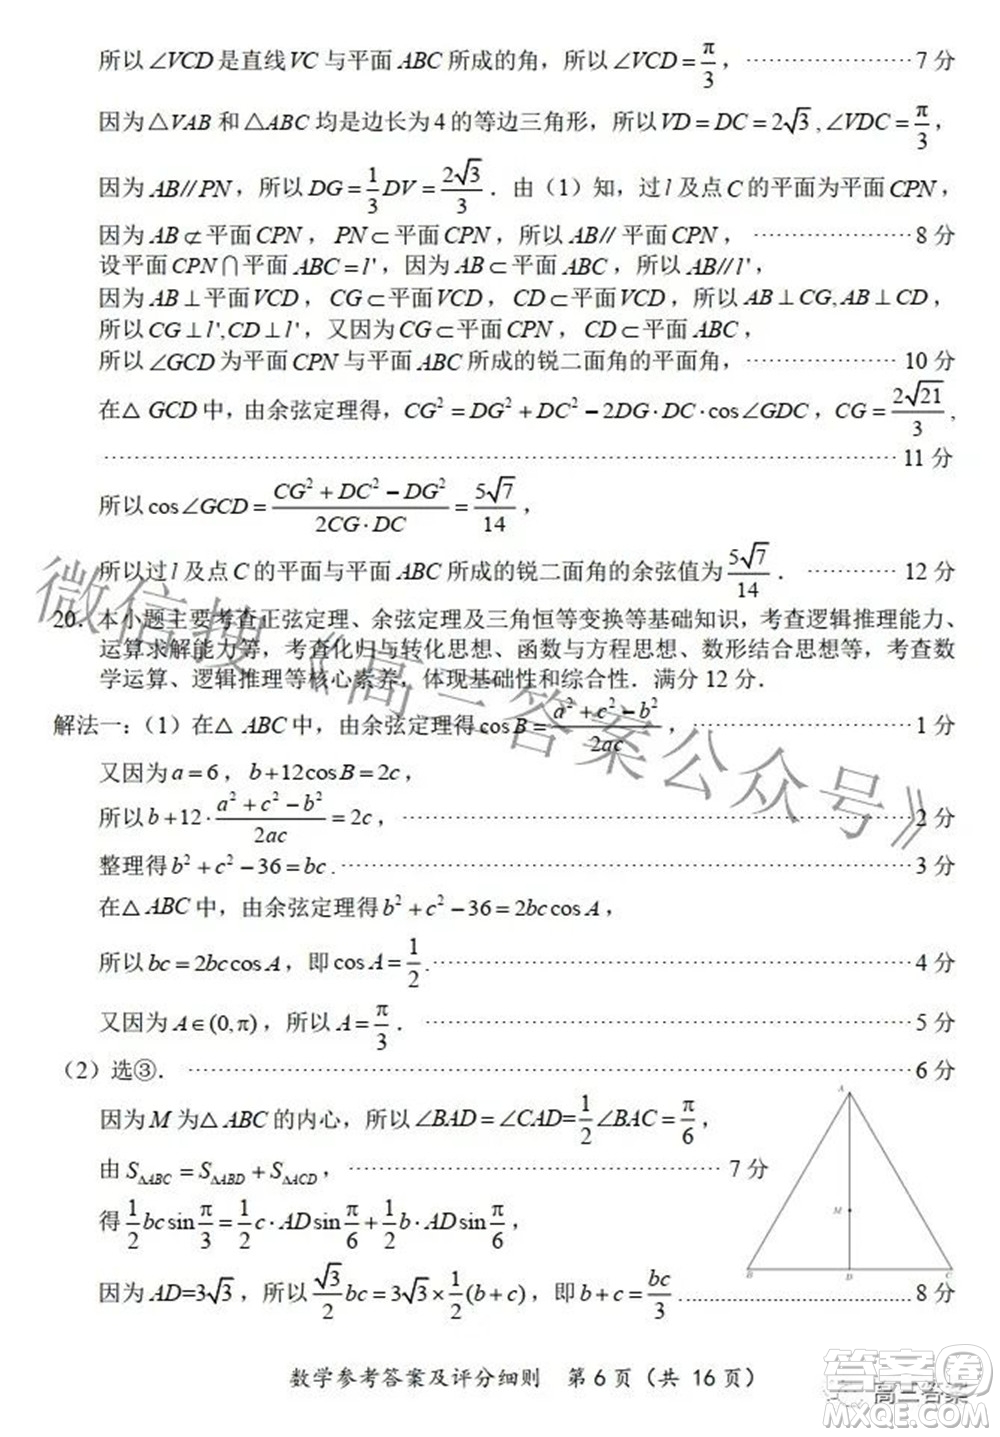 所以∠VCD是直线VC与平面ABC所成的角，所以∠VCD=π/3，……7分
因为△VAB和△ABC均是边长为4的等边三角形，所以VD=DC=2√3,∠VDC=π/3，
因为AB//PN，所以DG=1/3DV=2√3/3．由（1）知，过l及点C的平面为平面CPN，
因为AB⊄平面CPN，PN⊂平面CPN，所以AB//平面CPN，……8分
设平面CPN∩平面ABC=l'，因为AB⊂平面ABC，所以AB//l'，
因为AB⊥平面VCD，CG⊂平面VCD，CD⊂平面VCD，所以AB⊥CG,AB⊥CD，
所以CG⊥l',CD⊥l'，又因为CG⊂平面CPN，CD⊂平面ABC，
所以∠GCD为平面CPN与平面ABC所成的锐二面角的平面角，……10分
在△GCD中，由余弦定理得，CG²=DG²+DC²-2DG·DC·cos∠GDC，CG=2√21/3，
……11分
所以cos∠GCD=(CG²+DC²-DG²)/(2CG·DC)=5√7/14，
所以过l及点C的平面与平面ABC所成的锐二面角的余弦值为5√7/14．……12分
20．本小题主要考查正弦定理、余弦定理及三角恒等变换等基础知识，考查逻辑推理能力、
运算求解能力等，考查化归与转化思想、函数与方程思想、数形结合思想等，考查数
学运算、逻辑推理等核心素养，体现基础性和综合性．满分12分．
解法一：（1）在△ABC中，由余弦定理得cosB=(a²+c²-b²)/(2ac)，……1分
又因为a=6，b+12cosB=2c，
所以b+12·(a²+c²-b²)/(2ac)=2c，……2分
整理得b²+c²-36=bc．……3分
在△ABC中，由余弦定理得b²+c²-36=2bccosA，
所以bc=2bccosA，即cosA=1/2．……4分
又因为A∈(0,π)，所以A=π/3．……5分
（2）选③．……6分
因为M为△ABC的内心，所以∠BAD=∠CAD=1/2∠BAC=π/6，
由S△ABC=S△ABD+S△ACD，……7分
得1/2bcsinπ/3=1/2c·ADsinπ/6+1/2b·ADsinπ/6，
因为AD=3√3，所以√3/2bc=3√3×1/2(b+c)，即b+c=bc/3……8分
A
M
B D C
数学参考答案及评分细则 第6页（共16页）
微信搜《高三答案公众号》
高三答案
答案圈
MXQE.COM